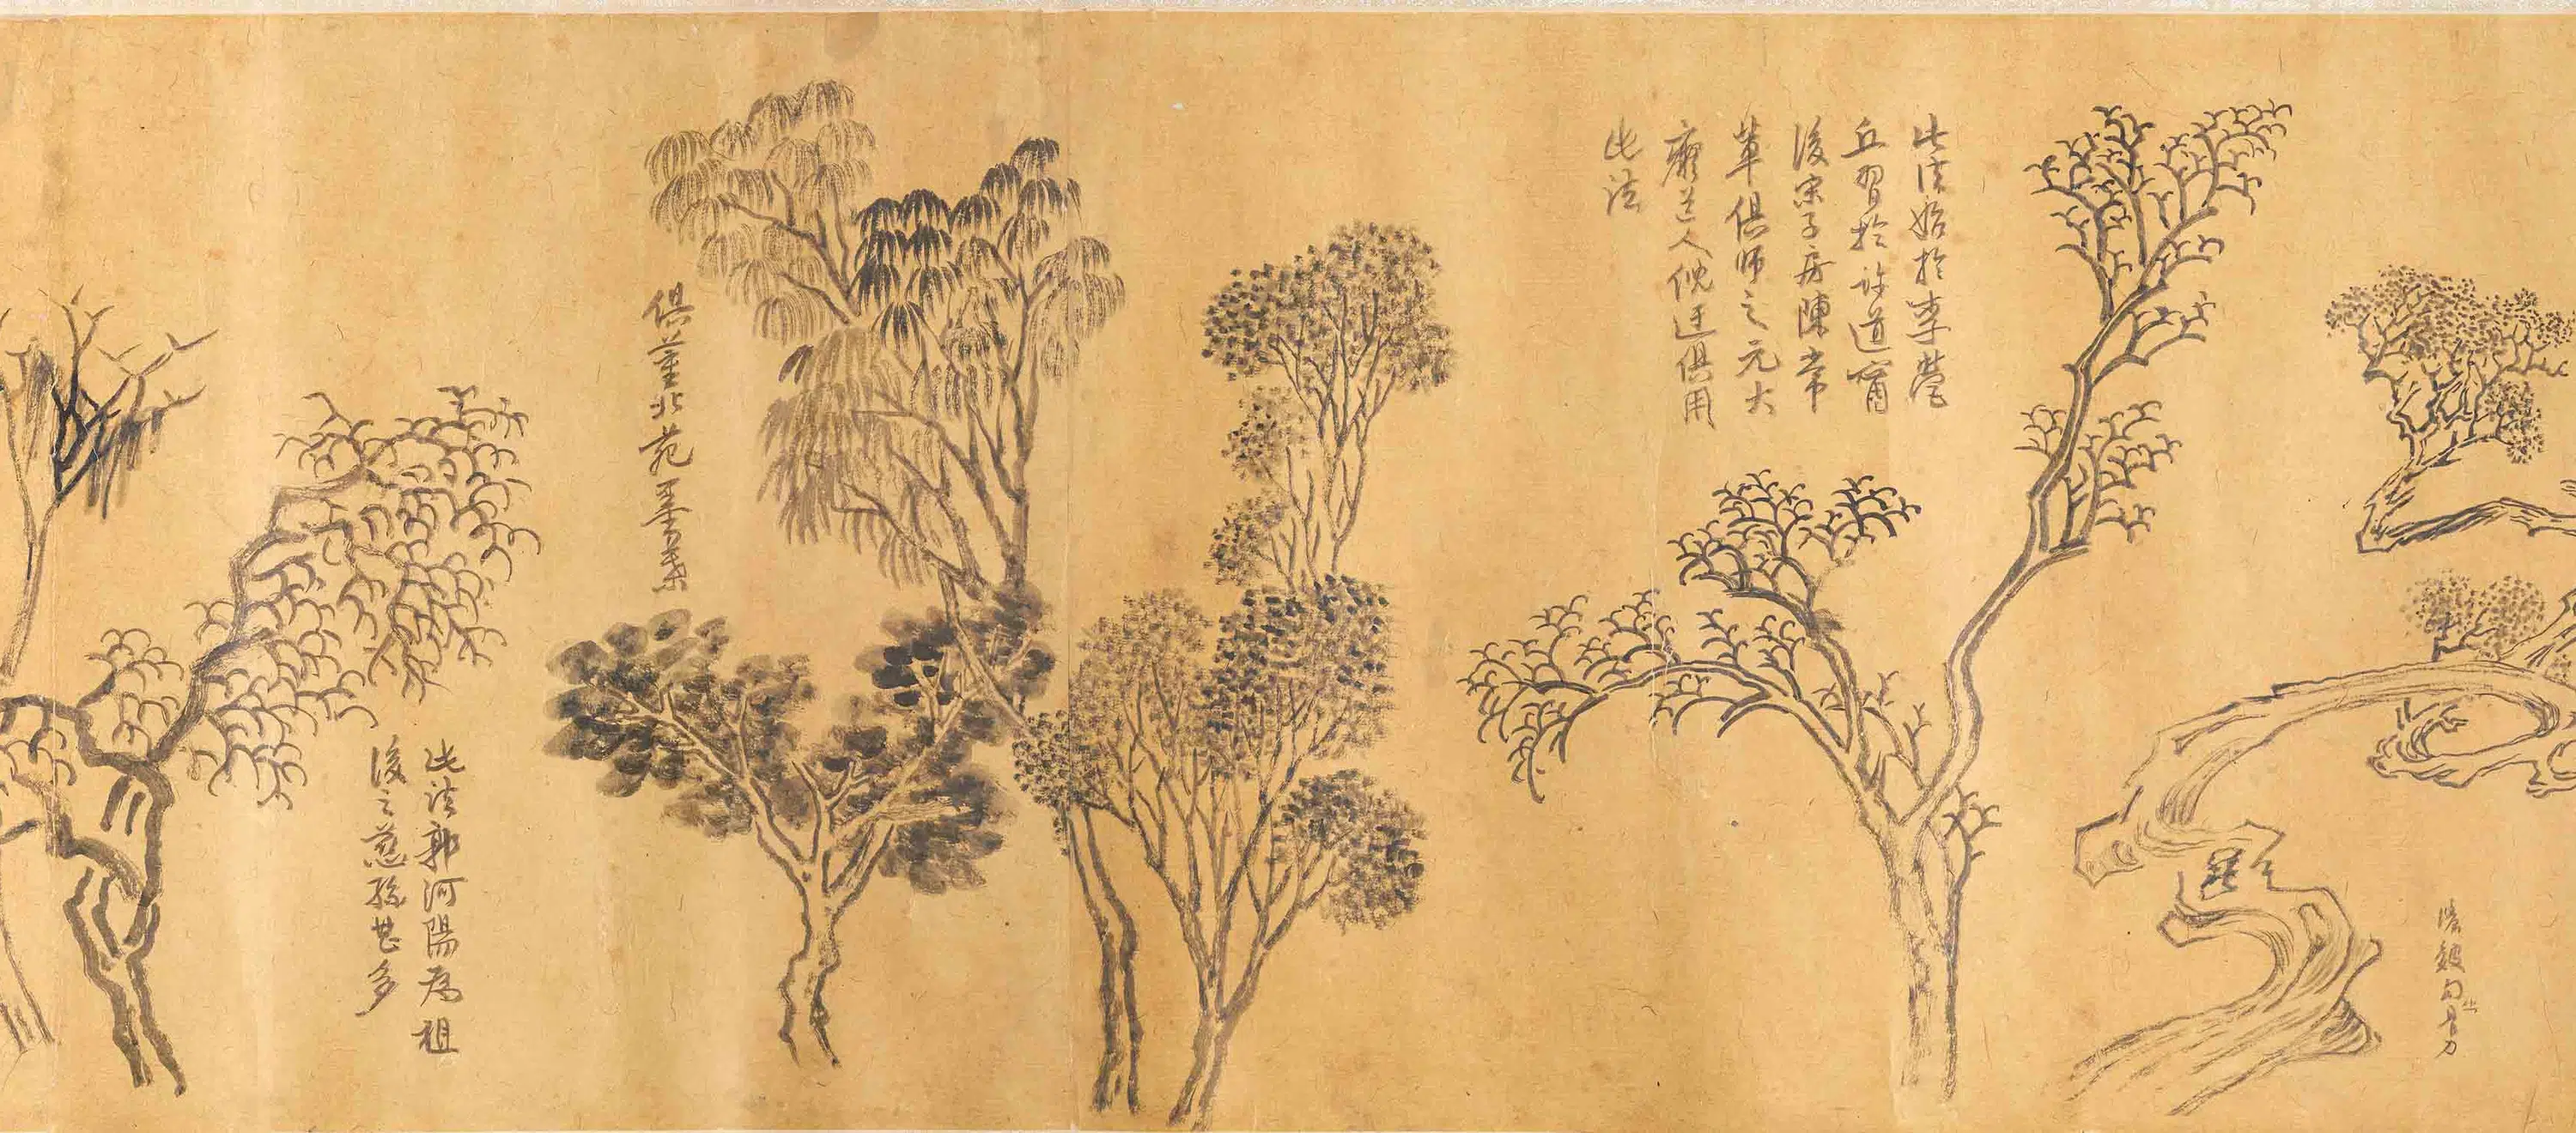 骨力
此法始於李營
丘習於許道甯
後宋子房陳常
輩俱師之元大
癡道人倪迂俱用
此法
俱董北苑墨葉
此法郭河陽為祖
後之慈孫甚多